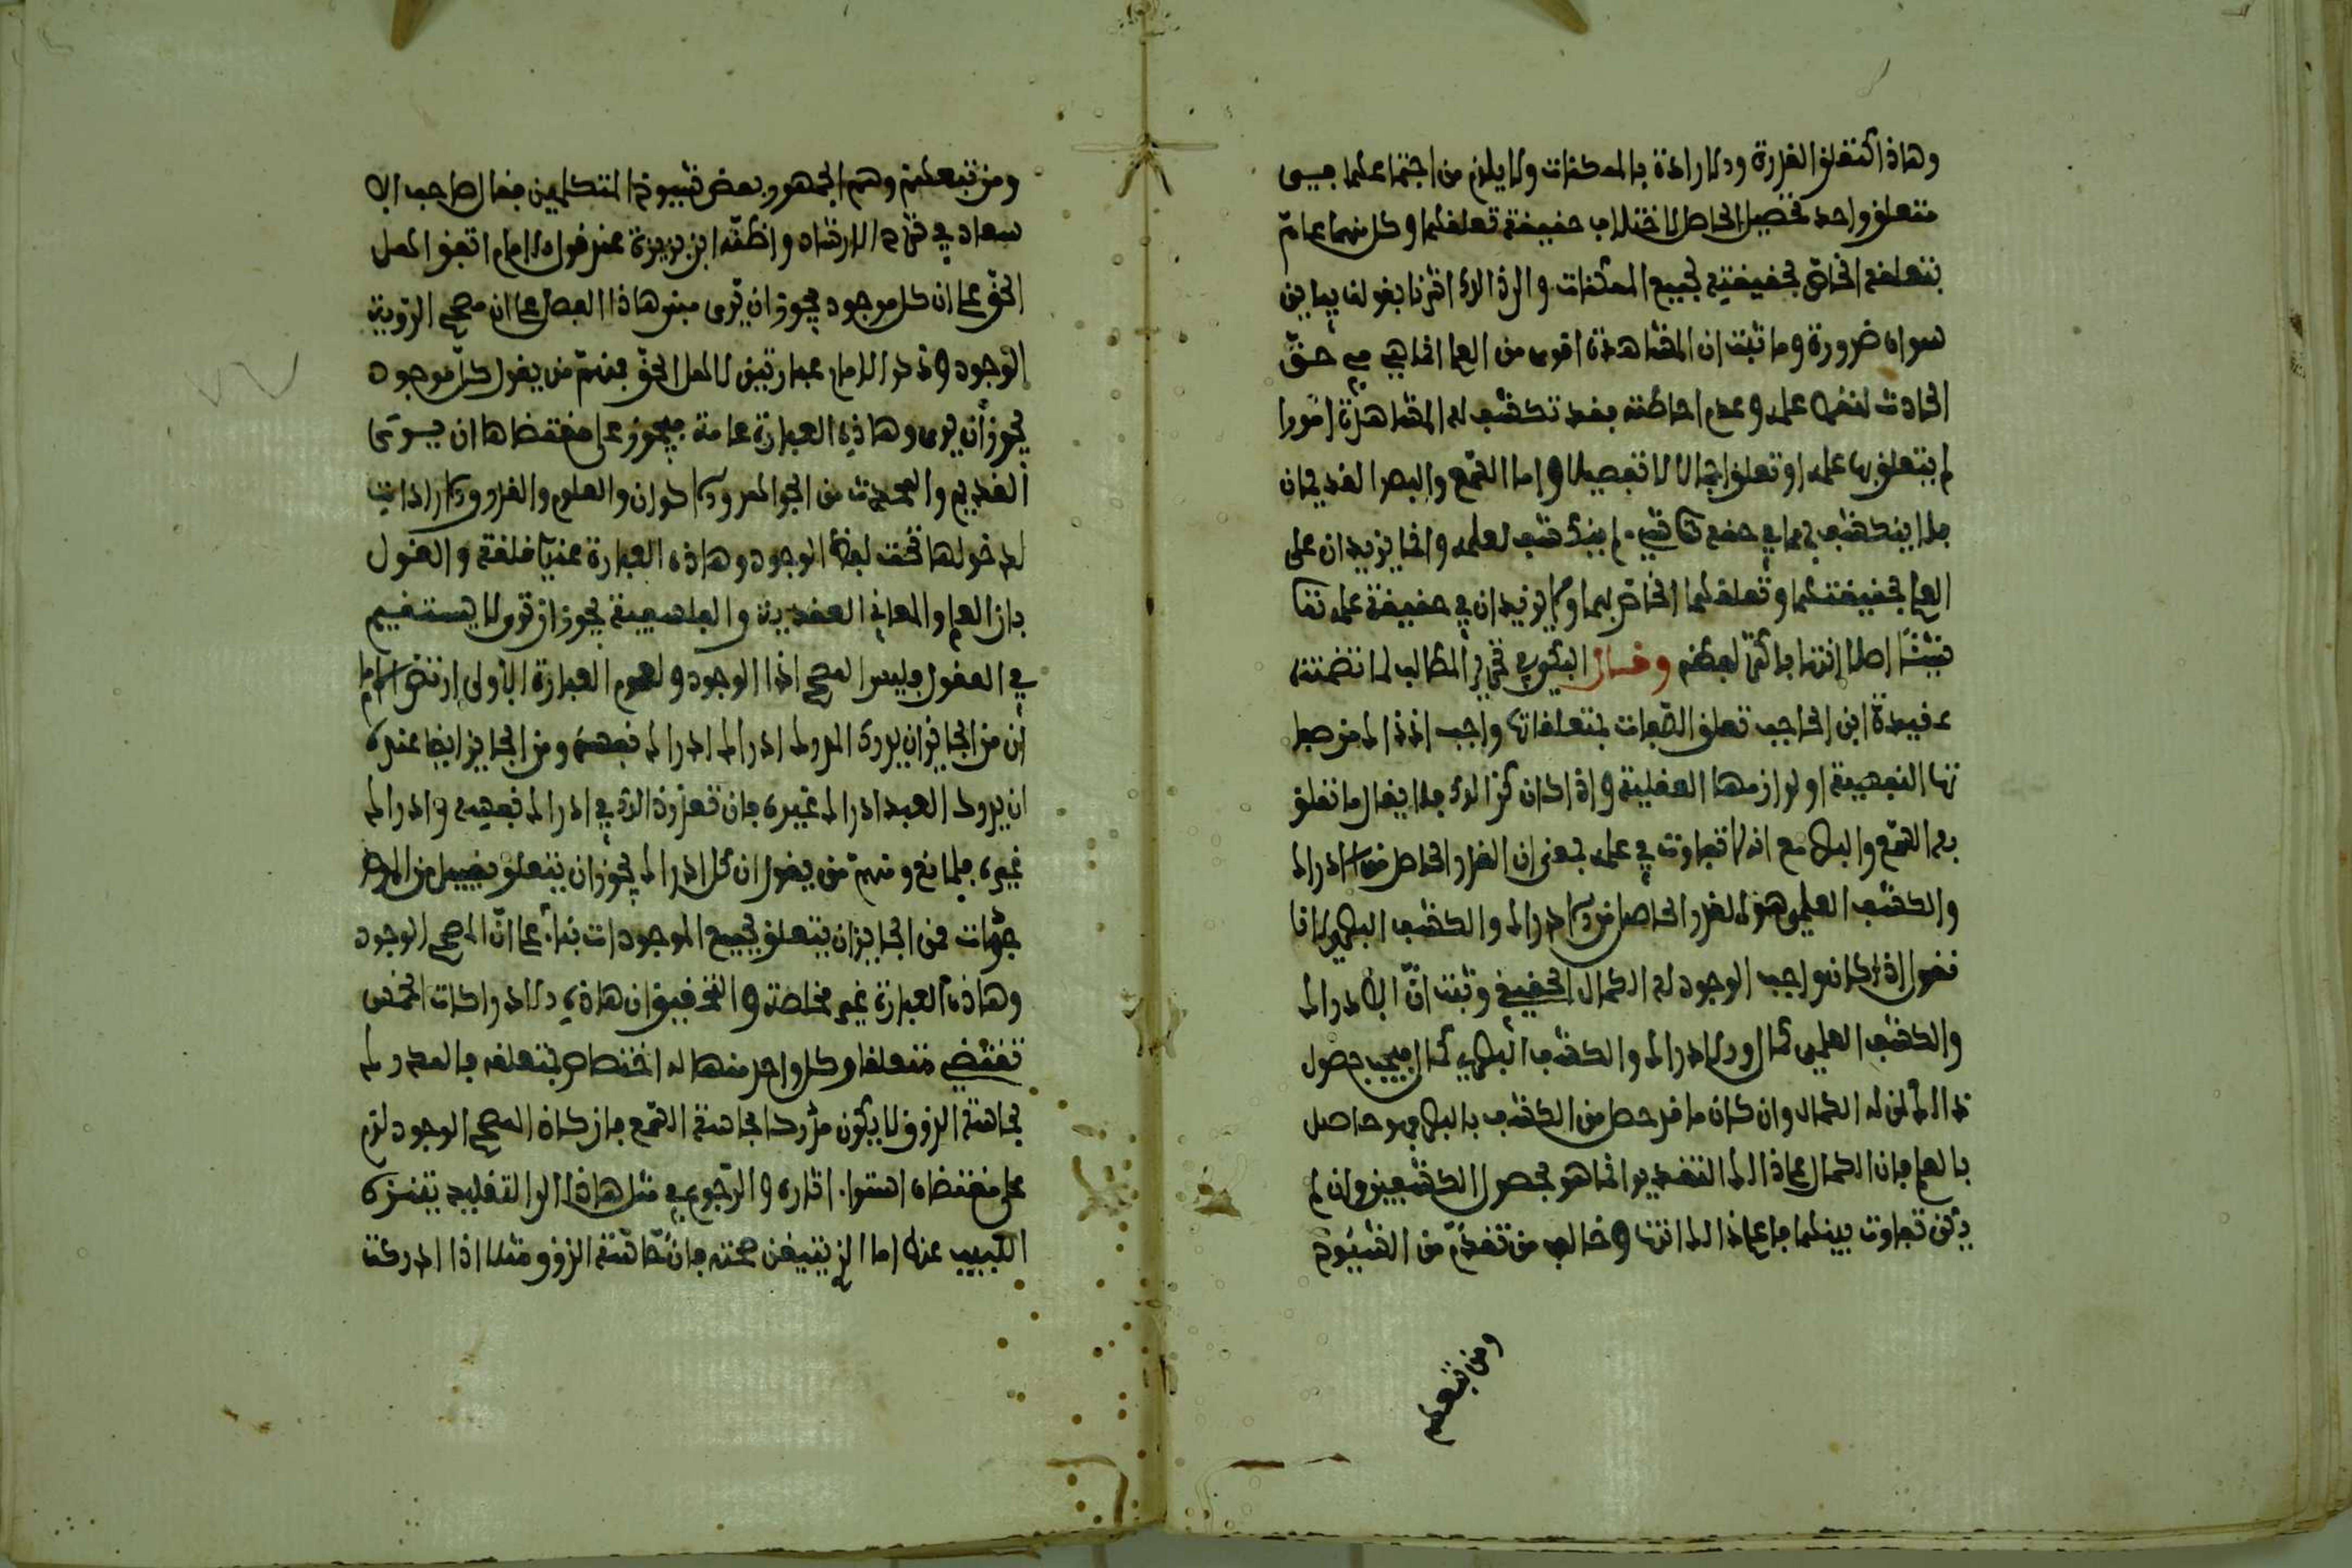 وهاذا كتعلق القدرة والارادة بالممكنات ولا يلزم من اجتماعهما في
متعلق واحد تحصيل الحاصل لاختلاف حقيقة تعلقهما وكل منهما عام
بتعلقه الخاص بحقيقته لجميع الممكنات والى ذالك اشرنا بقولنا يباين
سواه ضرورة وما ثبت ان المشاهدة اقوى من العلم انما هي في حق
الحادث لنقص علمه وعدم احاطته فقد تكشف له المشاهدة امورا
لم يتعلق بها علمه او تعلق اجمالا لا تفصيلا واما السمع والبصر القديمان
فلا ينكشف بهما في حقه تعالى شيء لم ينكشف لعلمه وانما يزيدان على
العلم بحقيقتهما وتعلقهما الخاص بهما ولا يزيدان في حقيقة علمه تعالى
شيئا اصلا انتهى باكثر لفظه وقال البكي في تحرير المطالب لما تضمنته
عقيدة ابن الحاجب تعلق الصفات بمتعلقاتها واجب اذ ذالك من صفا
تها النفسية او لوازمها العقلية واذا كان كذالك فلا يقال ما تعلق
به السمع والبصر مع انه لا تفاوت في علمه بمعنى ان القدر الحاصل من الادراك
والكشف العلمي هو القدر الحاصل من الادراك والكشف البصري لانا
نقول اذا كان واجب الوجود له الكمال الحقيقي وثبت ان الادراك
والكشف العلمي كمال والادراك والكشف البصري كمال فيجب حصول
ذالك لمن له الكمال وان كان ما قد حصل من الكشف بالبصر هو حاصل
بالعلم فان الكمال على ذالك التقدير انما هو بحصول الكشفين وان لم
يكن تفاوت بينهما فاعلم ذالك انتهى وخالف من تقدم من الشيوخ
ومن تبعهم
ومن تبعهم وهم الجمهور بعض شيوخ المتكلمين فقال صاحب الا
سعاد في شرح الارشاد واظنه ابن بزيزة عند قول الامام اتفق اهل
الحق على ان كل موجود يجوز ان يرى مبنى هاذا الفصل على ان مصحح الرؤية
الوجود وذكر الامام عبارتين لاهل الحق فمنهم من يقول كل موجود
يجوز أن يرى وهاذه العبارة عامة فيجوز على مقتضاها ان يرى
القديم والمحدث من الجواهر والاكوان والعلوم والقدر والارادات
لدخولها تحت لفظ الوجود وهاذه العبارة عندي قلقة والقول
بان العلم والمعاني العقدية والنفسية يجوز ان ترى لا يستقيم
في العقول فليس المصحح اذا الوجود ولعموم العبارة الأولى ارتضى الامام
أن من الجايز ان يدرك المدرك ادراك ادراك نفسه ومن الجايز ايضا عنده
ان يدرك العبد ادراك غيره فان تعذر ذالك في ادراك نفسه وادراك
غيره فلمانع ومنهم من يقول ان كل ادراك يجوز ان يتعلق بقبيل من المو
جودات فمن الجايز ان يتعلق بجميع الموجودات بناء على انّ المصحح الوجود
وهاذه العبارة غير مخلصة والتحقيق ان هاذه الادراكات الخمس
تقتضي متعلقا وكل واحد منها له اختصاص بمتعلقه فالمدرك
بحاسة الذوق لا يكون مدركا بحاسة السمع فان كان المصحح الوجود لزم
على مقتضاه استواء اثاره والرجوع في مثل هاذا الى التقليد يتنزه
اللبيب عنه اما الذي نتيقن صحته فان حاسة الذوق مثلا اذا ادركت